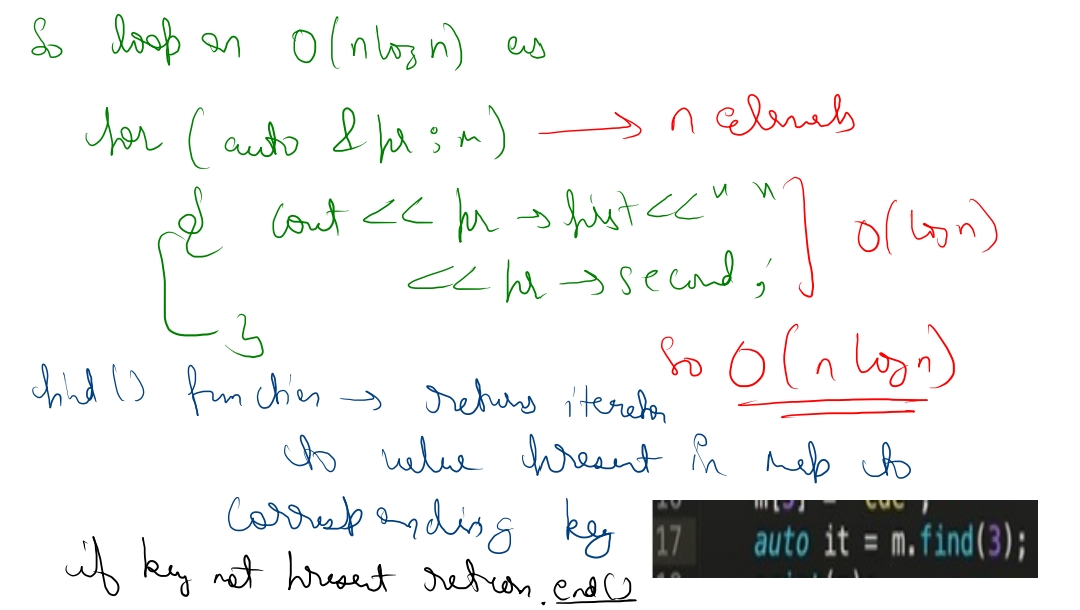 So loop on O(nlogn) as
for (auto &pr : m) → n elements
{ cout << pr → first << " "
<< pr → second;
} O(logn)
So O(nlogn)
find() function → returns iterator
to value present in map to
corresponding key
if key not present return .end()
17 auto it = m.find(3);